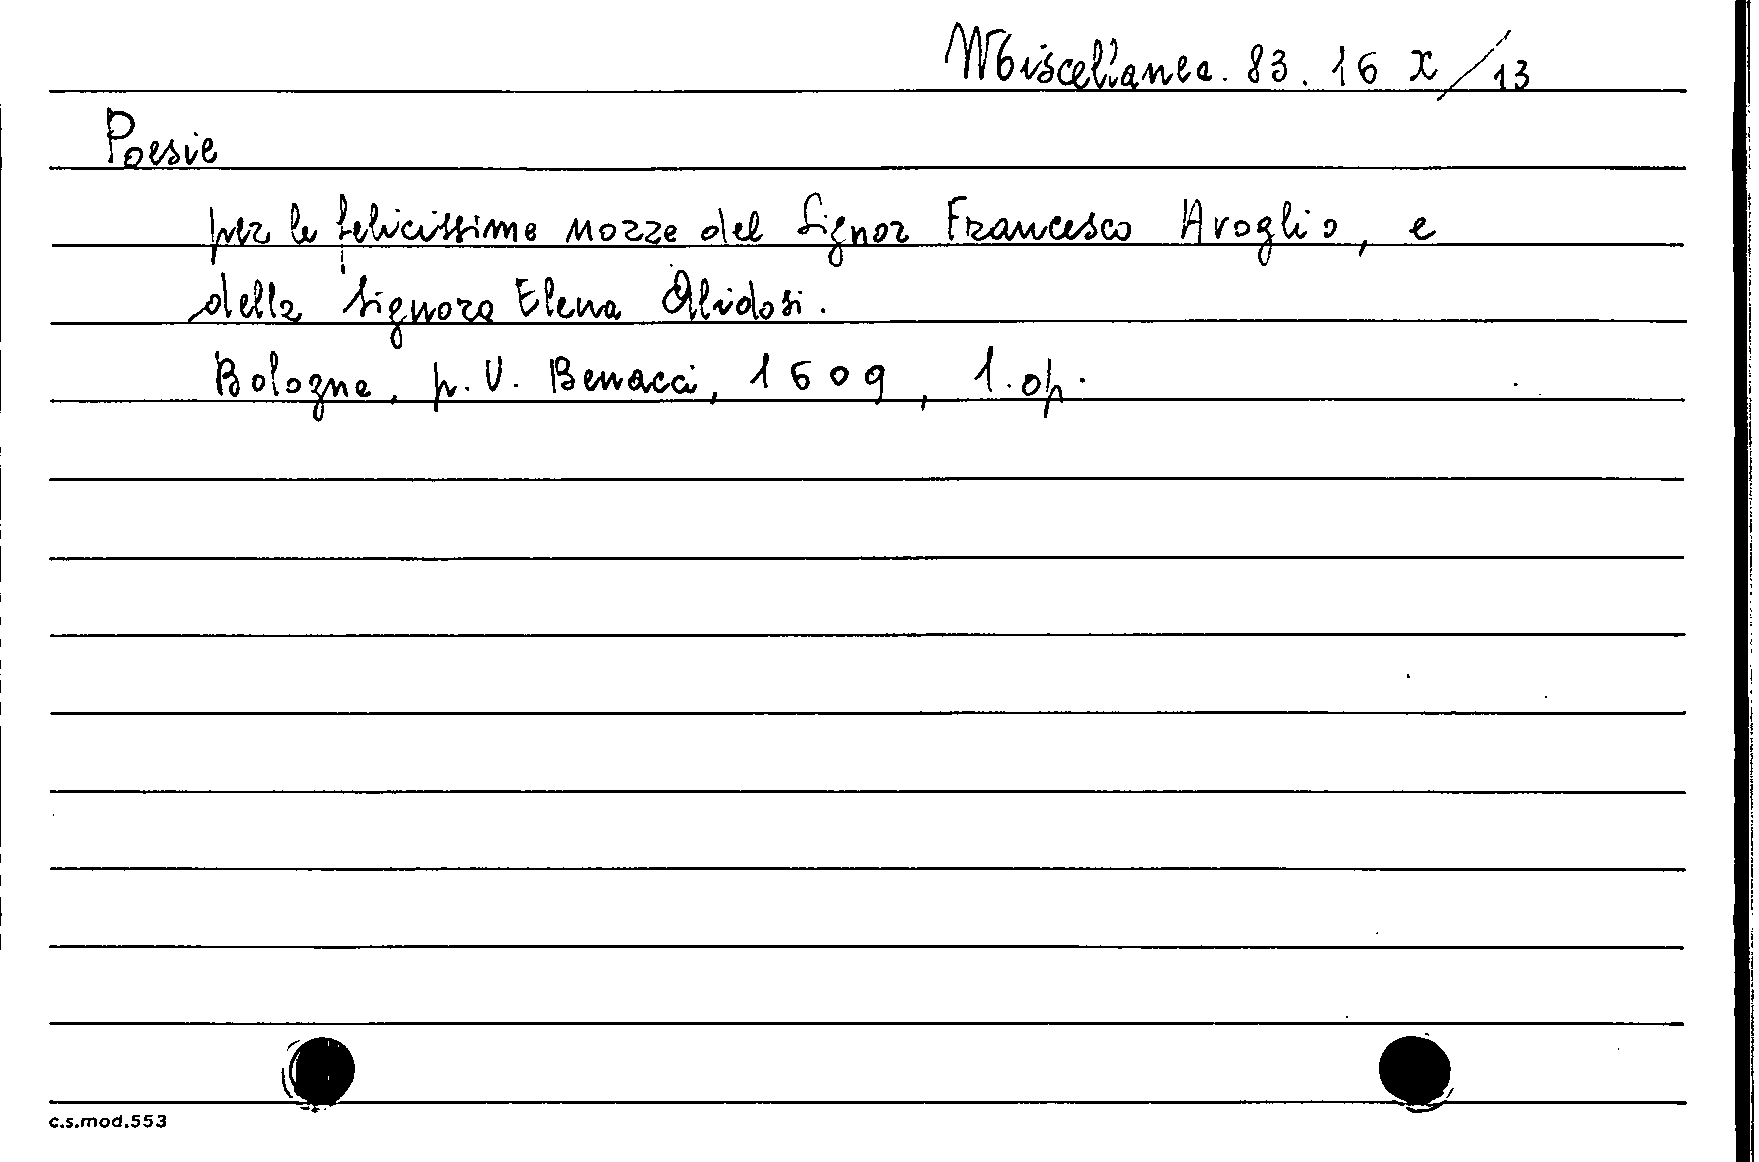 Miscellanea. 83. 16 X / 13
Poesie
per le felicissime nozze del Signor Francesco Avoglio, e
della Signora Elena Alidosi.
Bologna, p. V. Benacci, 1609, 1. op.
c.s.mod.553